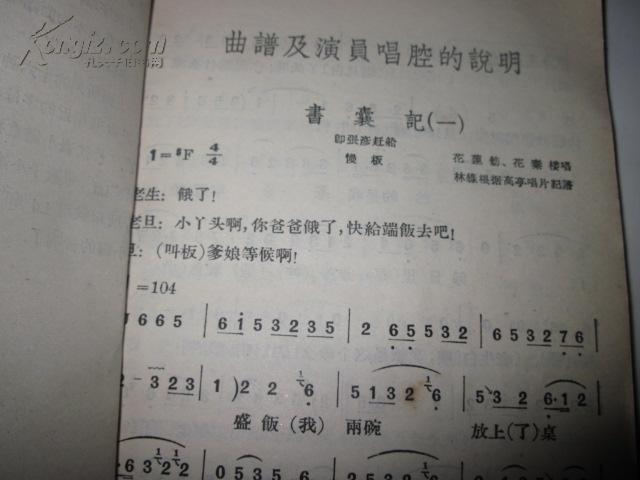 Kongfz.com
曲譜及演員唱腔的說明
書囊記(一)
即張彦赶船
1=♯F 4/4 慢板 花蓮舫、花楽樓唱
林綠根据高亭唱片記譜
老生：餓了！
老旦：小丫头啊，你爸爸餓了，快給端飯去吧！
旦：(叫板)爹娘等候啊！
=104
6 6 5 | 6 i 5 3 2 3 5 | 2 6 5 5 3 2 | 6 5 5 3 2 7 6 |
- 3 2 3 | 1 ) 2 2 6 | 5 1 3 2 6 | 5 3 2 6·1 2 |
盛飯(我) 兩碗 放上(了)桌
6 3 2 2 | 0 5 3 5